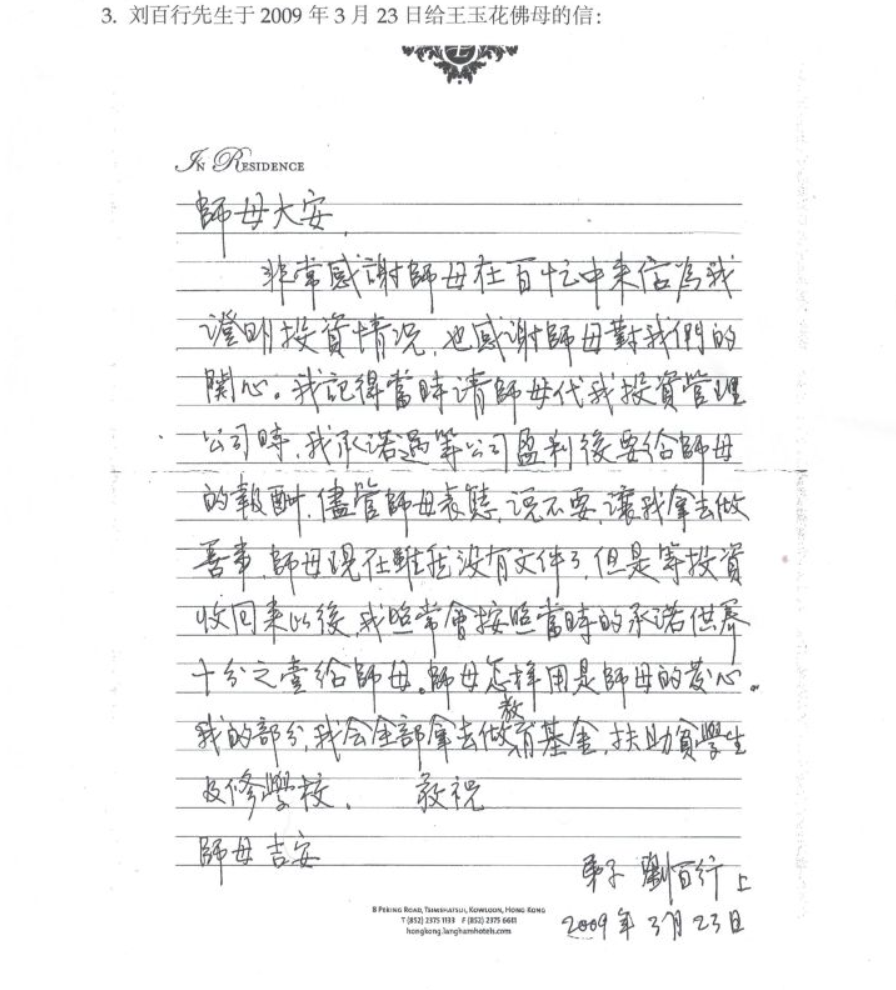 3. 刘百行先生于 2009 年 3 月 23 日给王玉花佛母的信：
IN RESIDENCE
師母大安，
非常感謝師母在百忙中来信為我
證明投資情况，也感谢師母對我們的
関心。我記得當時请師母代我投資管理
公司時，我承诺過等公司盈利後要给師母
的報酬，儘管師母表態，说不要，讓我拿去做
善事，師母現在雖然没有文件了，但是等投資
收回来以後，我照常會按照當時的承诺供养
十分之壹给師母。師母怎样用是師母的發心。
我的部分，我会全部拿去做教育基金，扶助貧學生
及修學校。 敬祝
師母吉安
弟子 劉百行 上
2009年3月23日
8 PEKING ROAD, TSIMSHATSUI, KOWLOON, HONG KONG
T (852) 2375 1133 F (852) 2375 6611
hongkong.langhamhotels.com